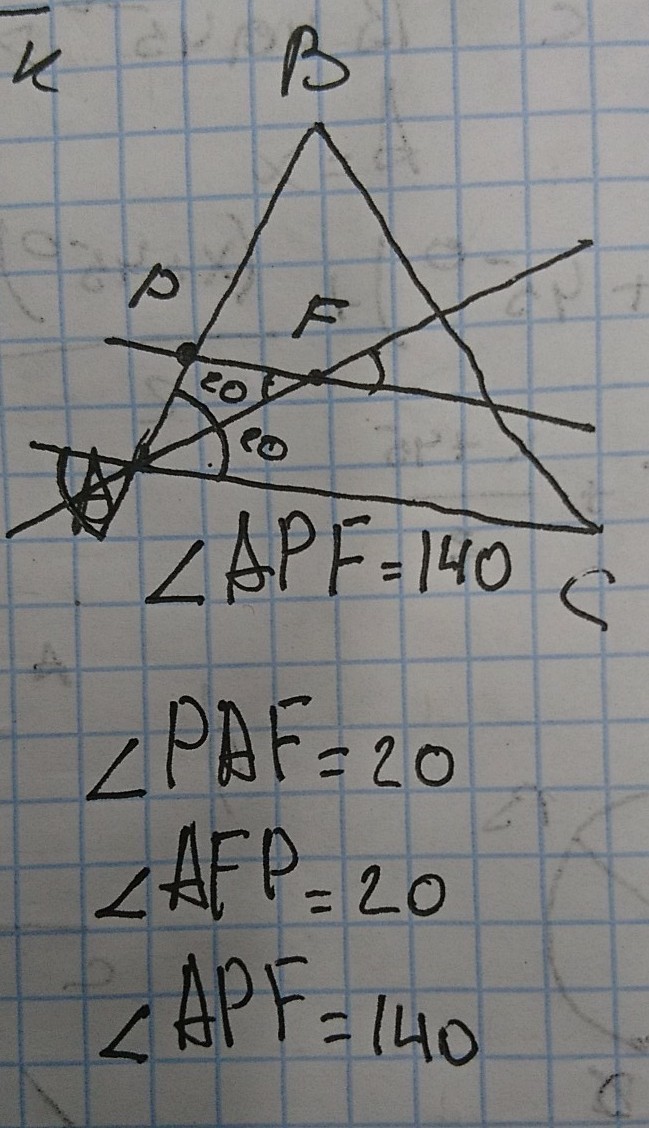 K
B
P
F
20
20
A
∠APF=140
C
∠PAF=20
∠AFP=20
∠APF=140